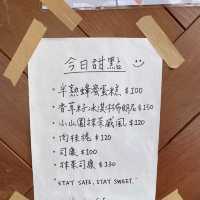 今日甜點
· 半熟蜂蜜蛋糕 $100
· 香草籽冰淇淋布朗尼 $150
· 小山園抹茶戚風 $120
· 肉桂捲 $120
· 司康 $100
· 抹茶司康 $130
"STAY SAFE, STAY SWEET."